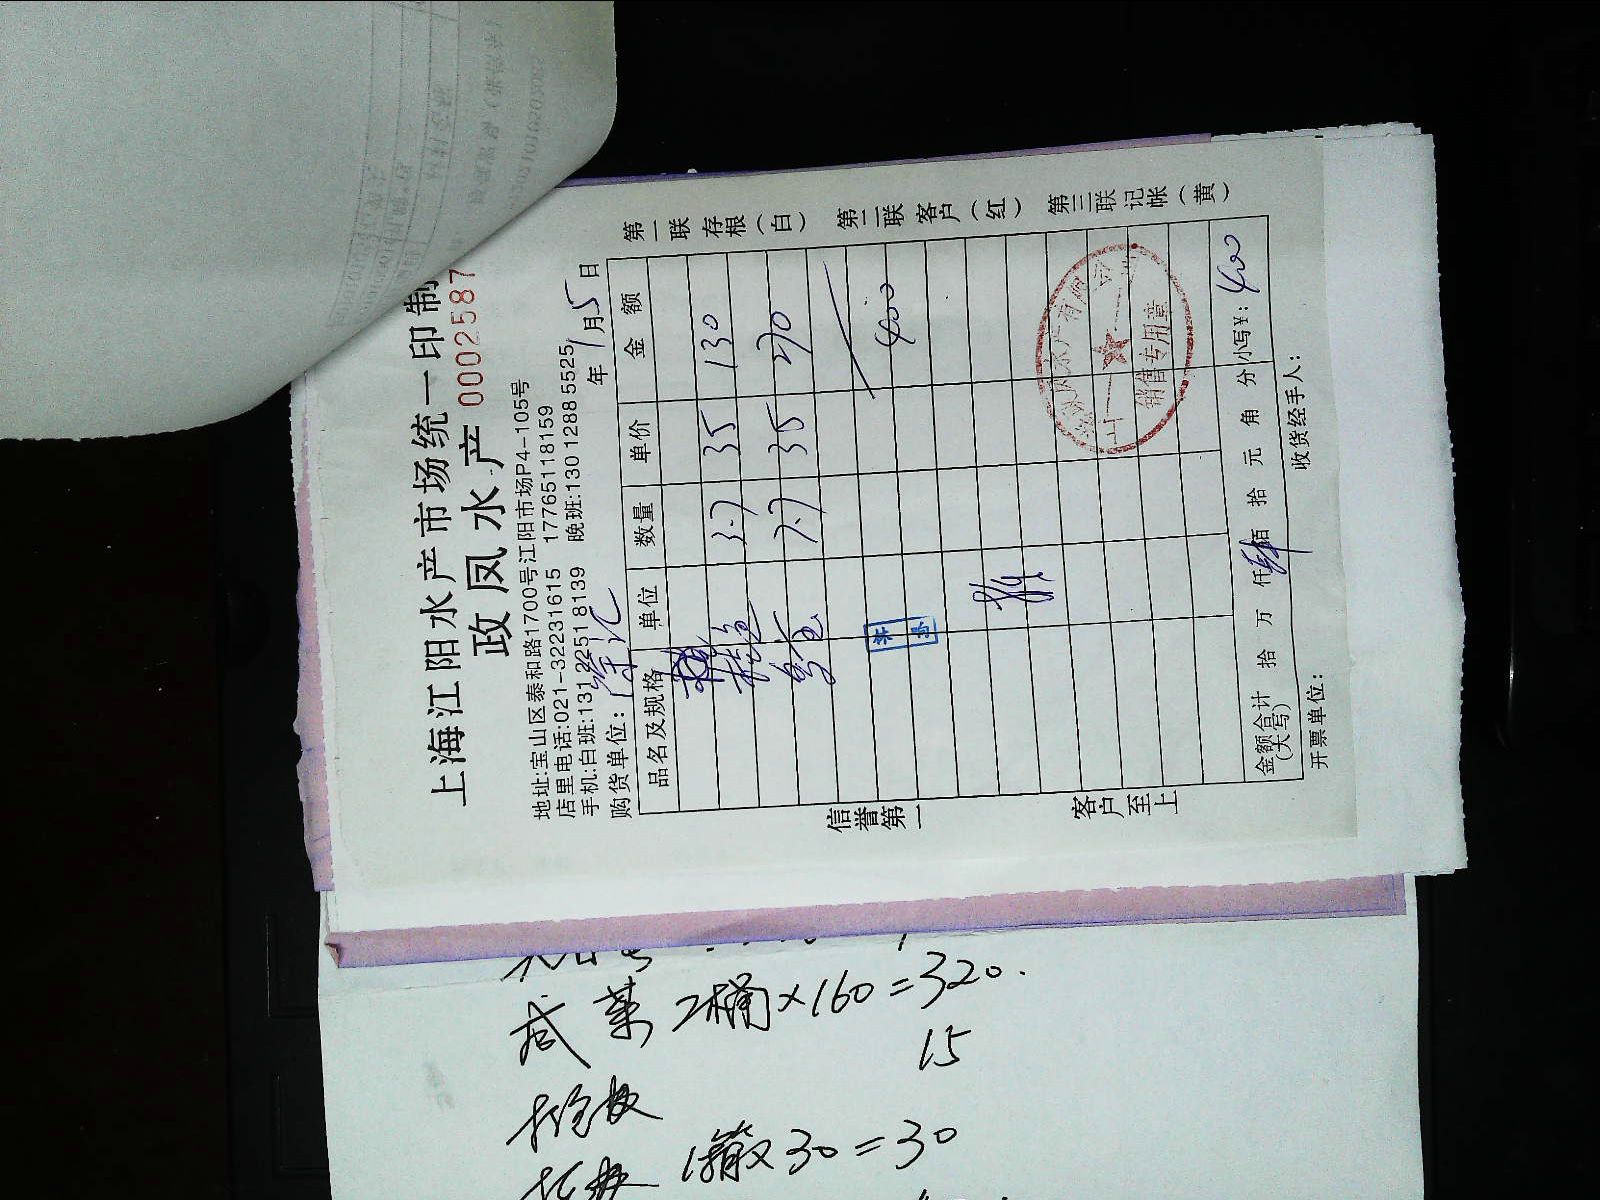 上海江阳水产市场统一印制
政凤水产 0002587
地址:宝山区泰和路1700号江阳市场P4-105号
店里电话:021-32231615 17765118159
手机:白班:13122518139 晚班:13012885525
购货单位: 徐汇 年 1月5日
品名及规格 单位 数量 单价 金额
3.7 35 130
鱼 7.7 35 270
400
金额合计(大写) 拾 万 仟 肆佰 拾 元 角 分 小写¥: 400
开票单位: 收货经手人:
第一联存根(白) 第二联客户(红) 第三联记帐(黄)
信誉第一
客户至上
水产有限公
销售专用章
咸菜 2桶×160=320.
15
1箱×30=30